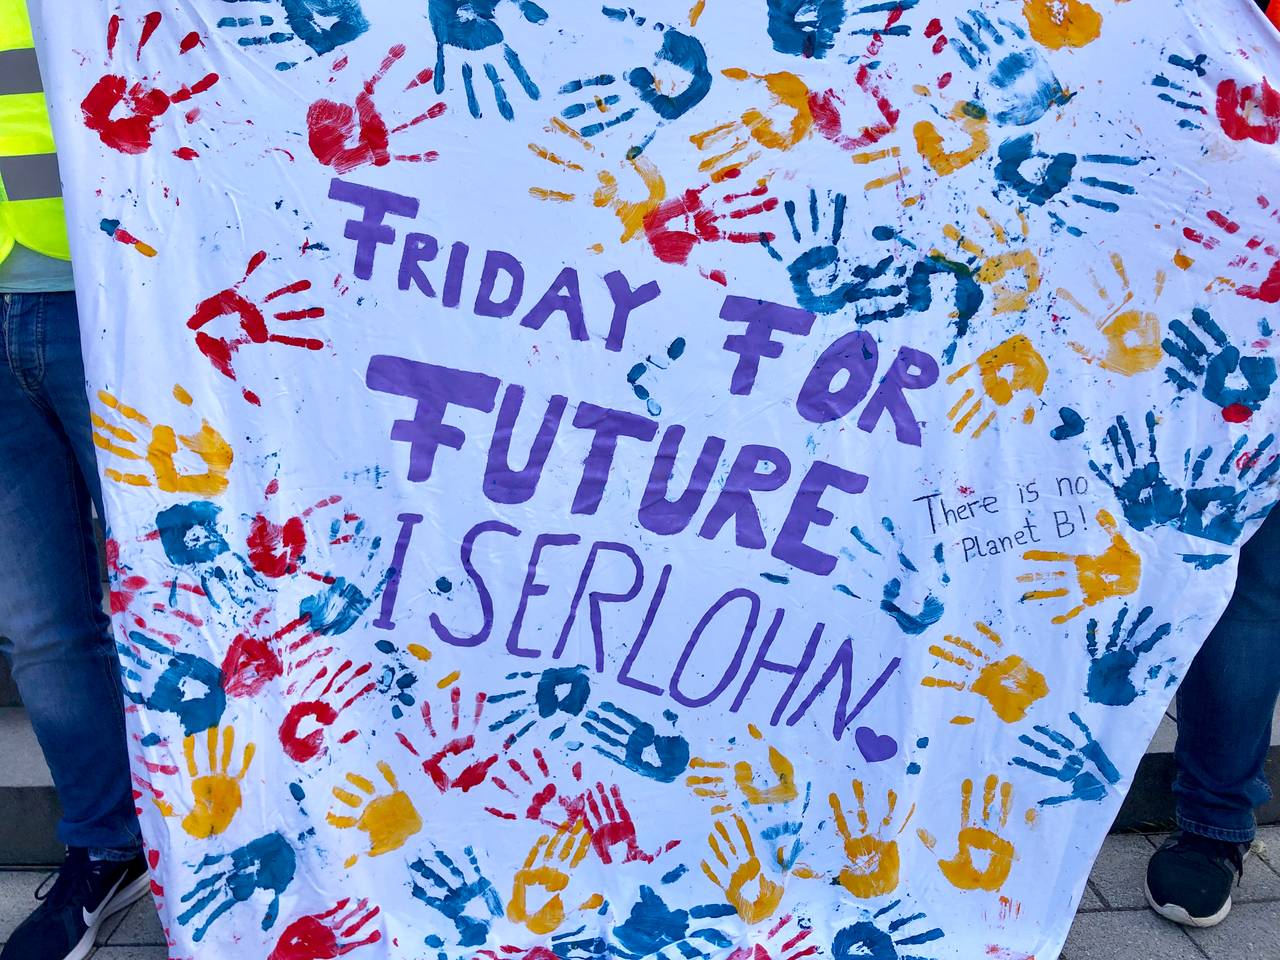 FRIDAY FOR
FUTURE
ISERLOHN
There is no
Planet B!